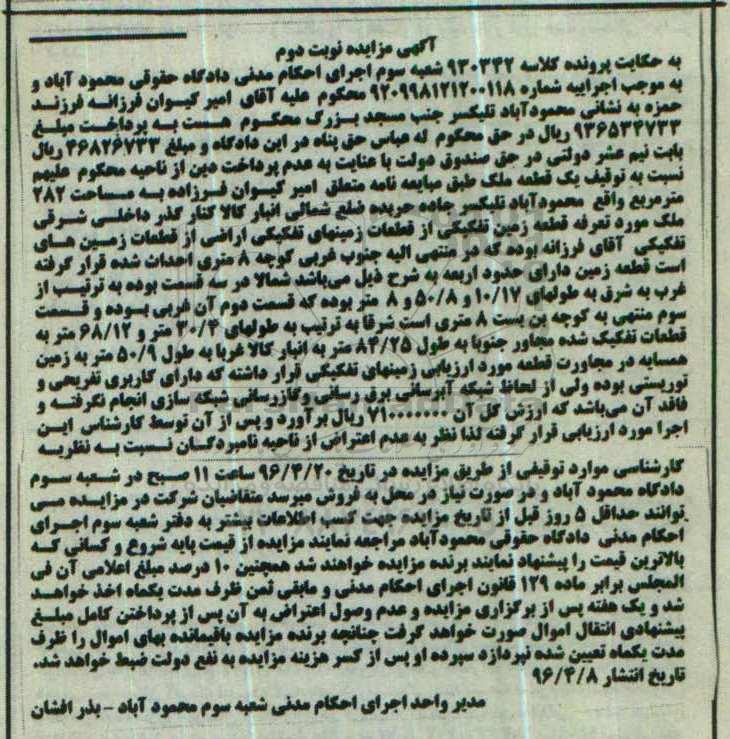 آگهی مزایده نوبت دوم
به حکایت پرونده کلاسه ۹۳۰۳۴۲ شعبه سوم اجرای احکام مدنی دادگاه حقوقی محمود آباد و
به موجب اجراییه شماره ۹۲۰۹۹۸۱۲۱۲۰۰۱۱۸ محکوم علیه آقای امیر کیوان فرزانه فرزند
حمزه به نشانی محمودآباد تلیکسر جنب مسجد بزرگ محکوم هست به پرداخت مبلغ
۹۳۶۵۳۴۷۳۳ ریال در حق محکوم له عباس حق پناه در این دادگاه و مبلغ ۴۶۸۲۶۷۳۳ ریال
بابت نیم عشر دولتی در حق صندوق دولت با عنایت به عدم پرداخت دین از ناحیه محکوم علیهم
نسبت به توقیف یک قطعه ملک طبق مبایعه نامه متعلق امیر کیوان فرزاده به مساحت ۲۸۲
مترمربع واقع محمودآباد تلیکسر جاده حریده ضلع شمالی انبار کالا کنار گذر داخلی شرقی
ملک مورد تعرفه قطعه زمین تفکیکی از قطعات زمینهای تفکیکی اراضی از قطعات زمین های
تفکیکی آقای فرزانه بوده که در منتهی الیه جنوب غربی کوچه ۸ متری احداث شده قرار گرفته
است قطعه زمین دارای حدود اربعه به شرح ذیل می‌باشد شمالا در سه قسمت بوده به ترتیب از
غرب به شرق به طولهای ۱۰/۱۷ و ۵۰/۸ و ۸ متر بوده که قسمت دوم آن غربی بوده و قسمت
سوم منتهی به کوچه بن بست ۸ متری است شرقا به ترتیب به طولهای ۳۰/۴ متر و ۶۸/۱۲ متر به
قطعات تفکیک شده مجاور جنوبا به طول ۸۴/۲۵ متر به انبار کالا غربا به طول ۵۰/۹ متر به زمین
همسایه در مجاورت قطعه مورد ارزیابی زمینهای تفکیکی قرار داشته که دارای کاربری تفریحی و
توریستی بوده ولی از لحاظ شبکه آبرسانی برق رسانی وگازرسانی شبکه سازی انجام نگرفته و
فاقد آن می‌باشد که ارزش کل آن ریال برآورد و پس از آن توسط کارشناس این
اجرا مورد ارزیابی قرار گرفته لذا نظر به عدم اعتراض از ناحیه نامبردگان نسبت به نظریه
کارشناسی موارد توقیفی از طریق مزایده در تاریخ ۹۶/۴/۲۰ ساعت ۱۱ صبح در شعبه سوم
دادگاه محمود آباد و در صورت نیاز در محل به فروش میرسد متقاضیان شرکت در مزایده می
توانند حداقل ۵ روز قبل از تاریخ مزایده جهت کسب اطلاعات بیشتر به دفتر شعبه سوم اجرای
احکام مدنی دادگاه حقوقی محمودآباد مراجعه نمایند مزایده از قیمت پایه شروع و کسانی که
بالاترین قیمت را پیشنهاد نمایند برنده مزایده خواهند شد همچنین ۱۰ درصد مبلغ اعلامی آن فی
المجلس برابر ماده ۱۲۹ قانون اجرای احکام مدنی و مابقی ثمن ظرف مدت یکماه اخذ خواهد
شد و یک هفته پس از برگزاری مزایده و عدم وصول اعتراض به آن پس از پرداختن کامل مبلغ
پیشنهادی انتقال اموال صورت خواهد گرفت چنانچه برنده مزایده باقیمانده بهای اموال را ظرف
مدت یکماه تعیین شده نپردازد سپرده او پس از کسر هزینه مزایده به نفع دولت ضبط خواهد شد.
تاریخ انتشار ۹۶/۴/۸
مدیر واحد اجرای احکام مدنی شعبه سوم محمود آباد - بذر افشان